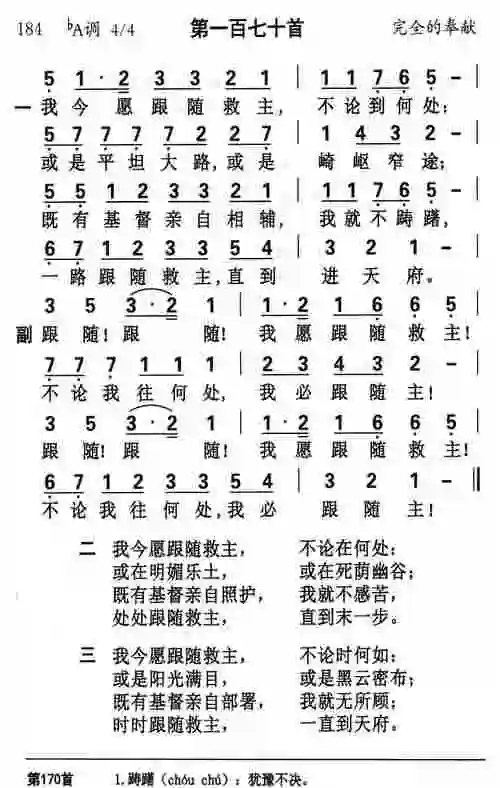 184 ᵇA调 4/4 第一百七十首 完全的奉献
5 1·2 3 3 2 1 | 1 1 7 6 5 – |
一我今愿跟随救主, 不论到何处;
5 7 7 7 7 2 2 7 | 1 4 3 2 – |
或是平坦大路,或是 崎岖窄途;
5 5 1 2 3 3 2 1 | 1 1 7 6 5 – |
既有基督亲自相辅, 我就不踌躇,
6 7 1 2 3 3 5 4 | 3 2 1 – |
一路跟随救主,直到 进天府。
3 5 3·2 1 | 1·2 1 6 6 5 |
副跟随!跟 随! 我愿跟随救主!
7 7 7 1 1 1 | 2 3 4 3 2 |
不论我往何处, 我必跟随主!
3 5 3·2 1 | 1·2 1 6 6 5 |
跟随!跟 随! 我愿跟随救主!
6 7 1 2 3 3 5 4 | 3 2 1 – ‖
不论我往何处,我必 跟随主!
二 我今愿跟随救主, 不论在何处;
或在明媚乐土, 或在死荫幽谷;
既有基督亲自照护, 我就不感苦,
处处跟随救主, 直到末一步。
三 我今愿跟随救主, 不论时何如;
或是阳光满目, 或是黑云密布;
既有基督亲自部署, 我就无所顾;
时时跟随救主, 一直到天府。
第170首 1.踌躇(chóu chú):犹豫不决。